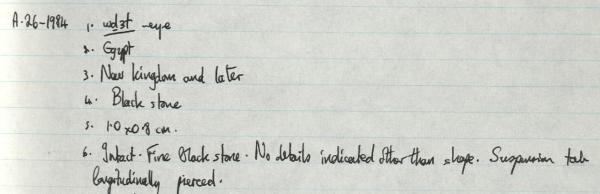 A.26-1984 1. wd3t -eye
2. Egypt
3. New Kingdom and later
4. Black stone
5. 1.0 x 0.8 cm.
6. Intact. Fine black stone. No details indicated other than shape. Suspension tab
longitudinally pierced.